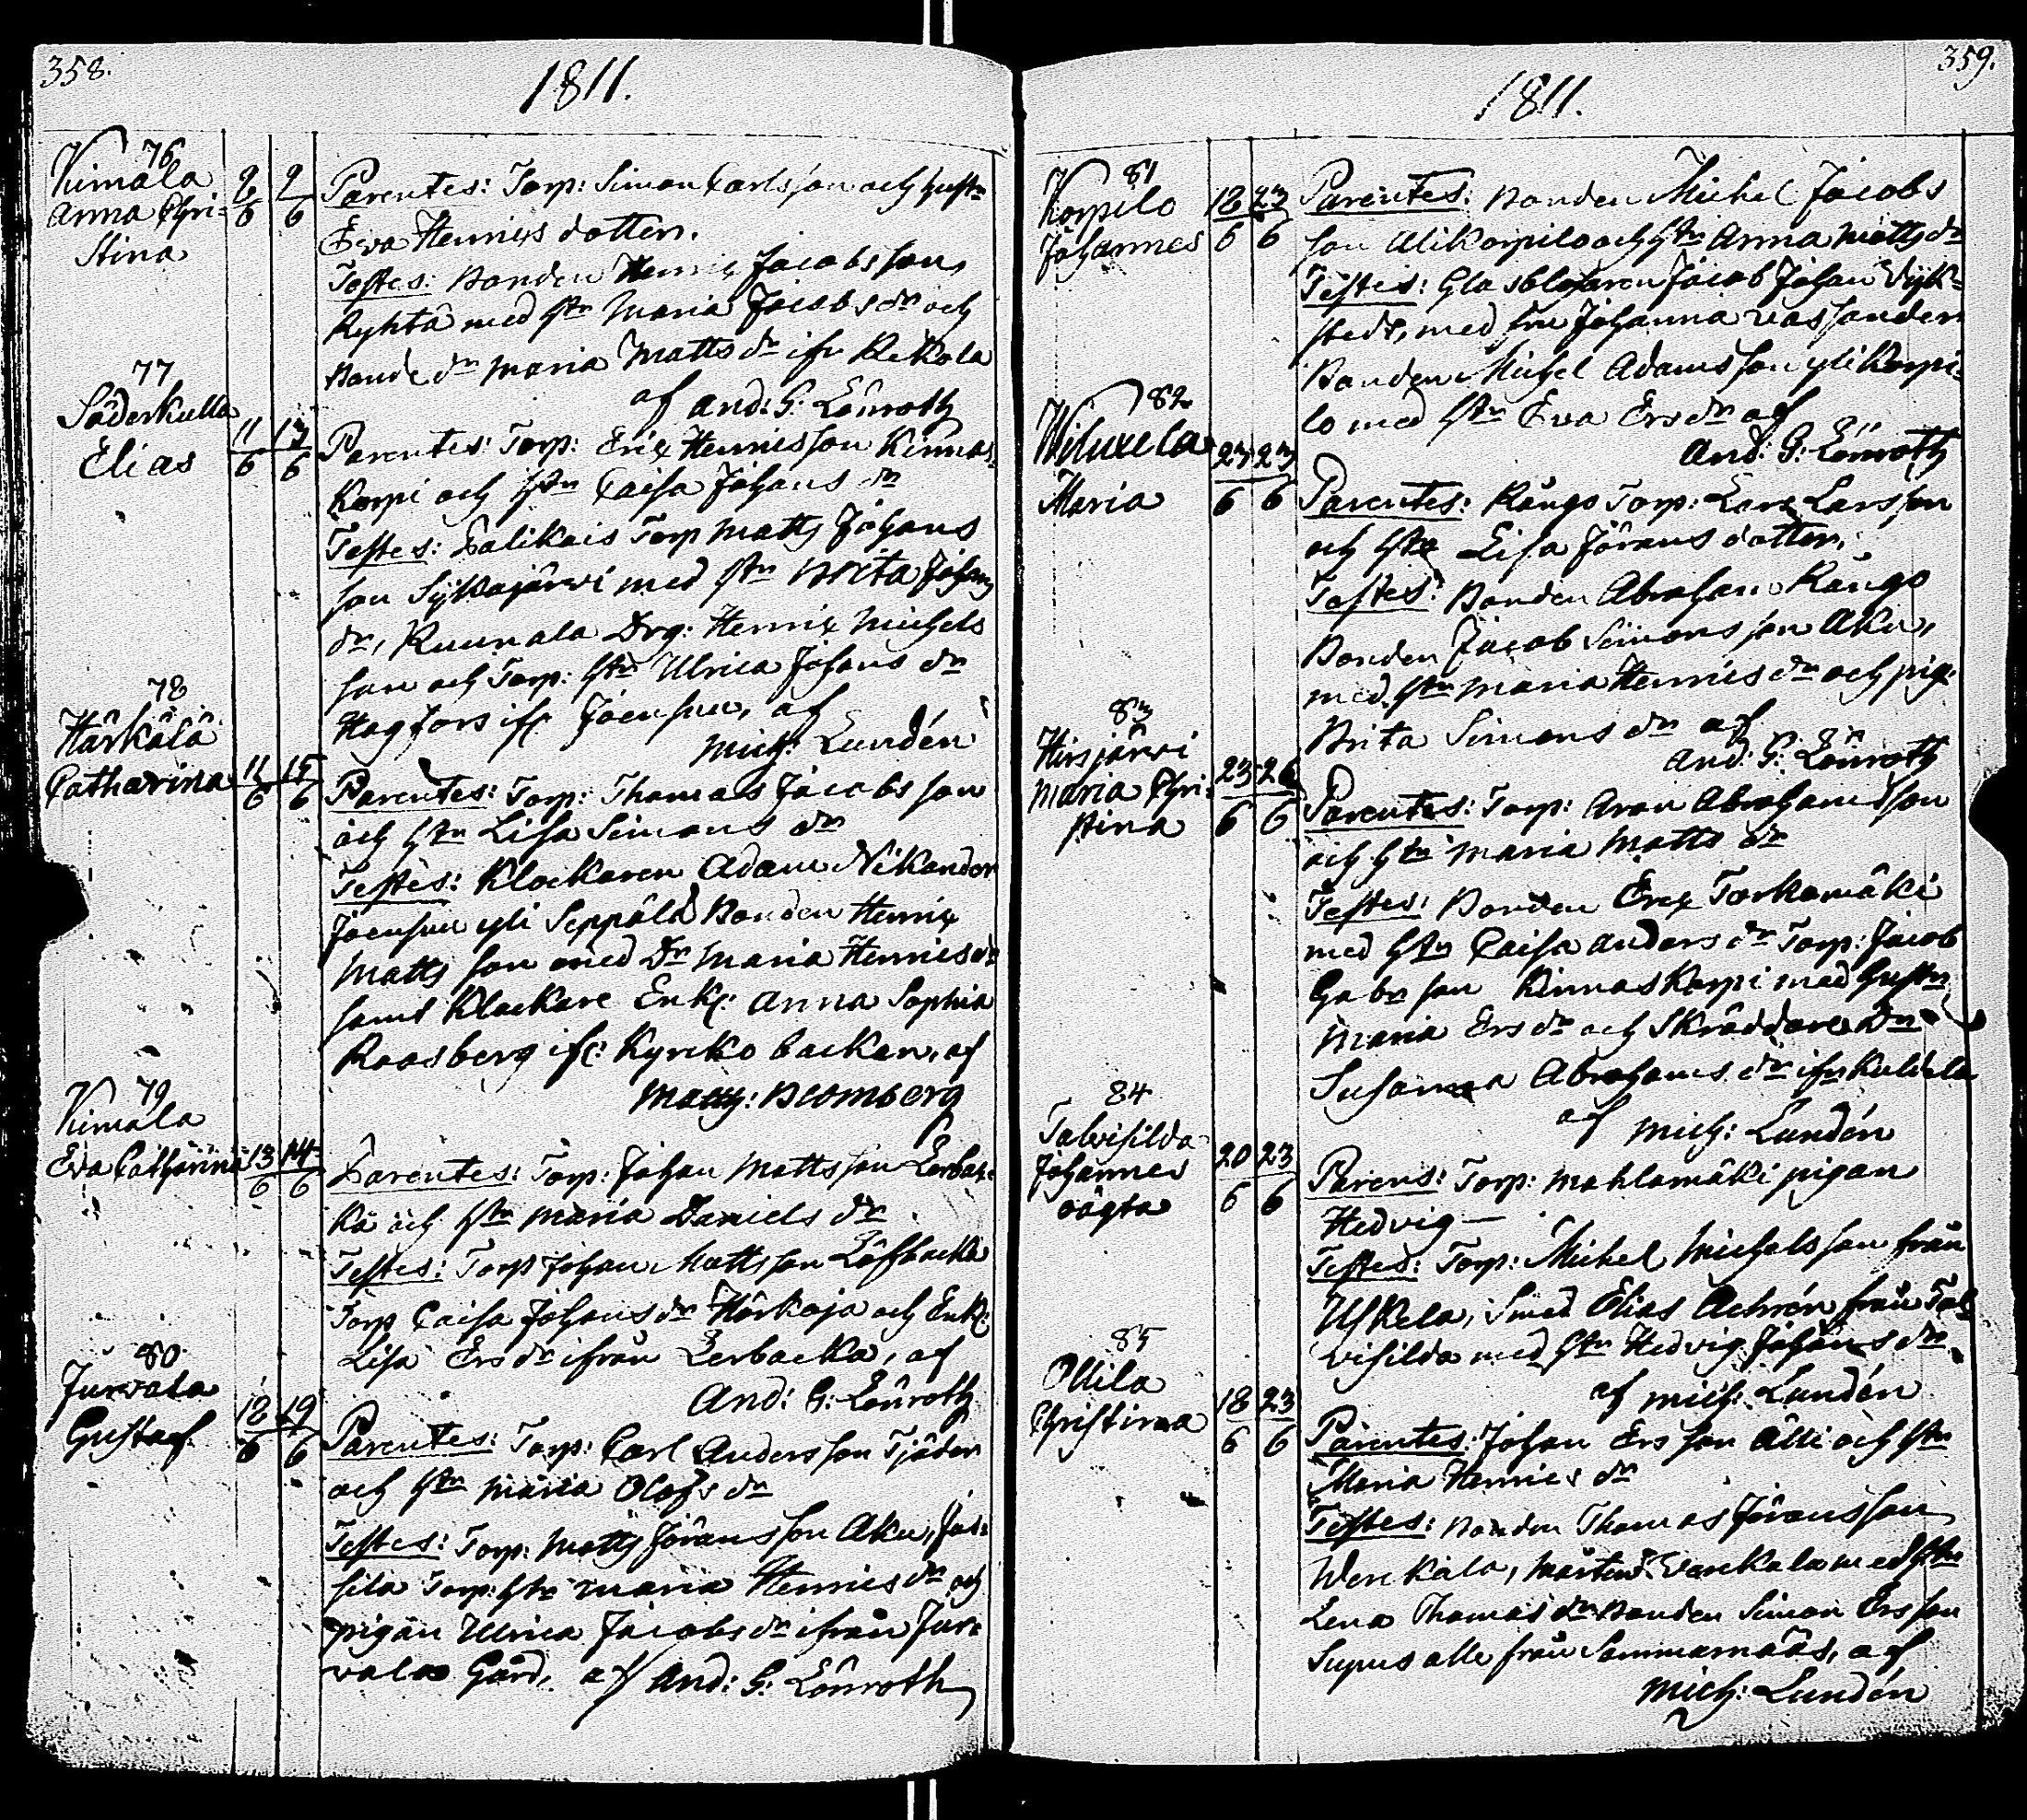 358.
1811.
76
Kimala
Anna Chri-
stina
2/6 2/6
Parentes: Torp: Simon Carlsson och hust
Eva Henrics dotter.
Testes: Bonden Henric Jacobsson,
Ryhtä med hn Maria Jacobs dr och
Bonde dr Maria Matts dr ifr Rekola
af And: G: Lönroth
77
Söderkulla
Elias
11/6 13/6
Parentes: Torp: Eric Henricsson Kinnas-
korpi och hn Caisa Johans dr
Testes: Torp Matts Johans
son Sykäjärvi med hn Brita Johans
dr, Kuurnala Drg: Henric Michels
son och Torp: hn Ulrica Johans dr
Hagfors ifr Joensuu, af
Mich: Lundén
78
Härkälä
Catharina
11/6 15/6
Parentes: Torp: Thomas Jacobs son
och hn Lisa Simons dr
Testes: Klockaren Adam Nikander
Joensuu yli Seppälä Bonden Henric
Matts son med Dr Maria Henrics dr
samt Klockare Enk: Anna Sophia
Roosberg ifr: Kyrcko backen, af
Matth: Blomberg
79
Kimala
Eva Catharina
13/6 14/6
Parentes: Torp: Johan Mattsson Lerbac-
ka och hn Maria Daniels dr
Testes: Torp Johan Mattsson Löfbacka
Torp Caisa Johans dr Härkoja och Enk:
Lisa Ers dr ifrån Lerbacka, af
And: G: Lönroth
80
Jurvala
Gustaf.
18/6 19/6
Parentes: Torp: Carl Andersson Tjäder
och hn Maria Olofs dr
Testes: Torp: Matts Jöransson Aku, Jus-
sila Torp: hn Maria Henrics dr och
pigan Ulrica Jacobs dr ifrån Jur-
vala Gård, af And: G: Lönroth
359.
1811.
81
Korpilo
Johannes
18/6 23/6
Parentes: Bonden Michel Jacobs
son Alikorpilo och hn Anna Matts dr
Testes: Glasblåsaren Jacob Johan Dyk-
stedt, med fru Johanna
Bonden Michel Adamsson yli Korpi-
lo med hn Eva Ers dr af
And: G: Lönroth
82
Wiluxela
Maria
23/6 23/6
Parentes: Kångo Torp: Lars Larsson
och hn Lisa Jörans dotter.
Testes: Bonden Abraham Kångo
Bonden Jacob Simonsson Aku,
med hn Maria Henrics dr och pig:
Brita Simons dr af
And: G: Lönroth
83
Hirsjärvi
Maria Chri-
stina
23/6 26/6
Parentes: Torp: Aron Abrahamsson
och hn Maria Matts dr
Testes: Bonden Eric Torkamäki
med hn Caisa Anders dr Torp: Jacob
Gabr son Kinnaskorpi med hust
Maria Ers dr och Skräddare Dr
Susanna Abrahams dr ifr Kuldala
af Mich: Lundén
84
Talvisilda
Johannes
oägta
20/6 23/6
Parens: Torp: Mahlamäki pigan
Hedvig —
Testes: Torp: Michel Michelsson från
Uskela, Smed Elias Achrén från Tal-
visilda med hn Hedvig Johans dr
af Mich: Lundén
85
Ollila
Christina
18/6 23/6
Parentes: Johan Ersson Älli och hn
Maria Henrics dr
Testes: Bonden Thomas Jöransson
Werckala, Mårten Verckala med hn
Lena Thomas dr Bonden Simon Ersson
Supus alle från Sammarnääs, af
Mich: Lundén